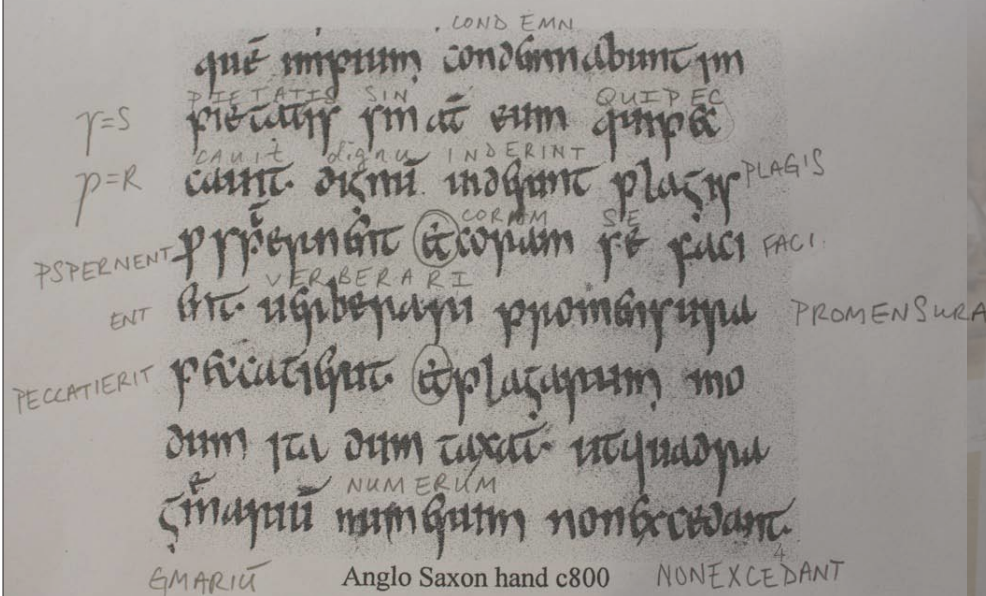 COND EMN
quē impium condemnabunt im
PIETATIS SIN QUIPEC
pietatis sin at̄ eum quipec
ɼ=S
cauit dignu INDERINT
cauit· dignū inderint plagis PLAGIS
p=R
CORAM SE
PSPERNENT &coram se faci FACI
VERBERARI
ENT ent· uerberari promensura PROMENSURA
PECCATIERIT peccatierit· &plagarum mo
dum ita dum taxat· utquadra
NUMERUM
genariū numerum nonexcedant·
4
GMARIŪ Anglo Saxon hand c800 NONEXCEDANT